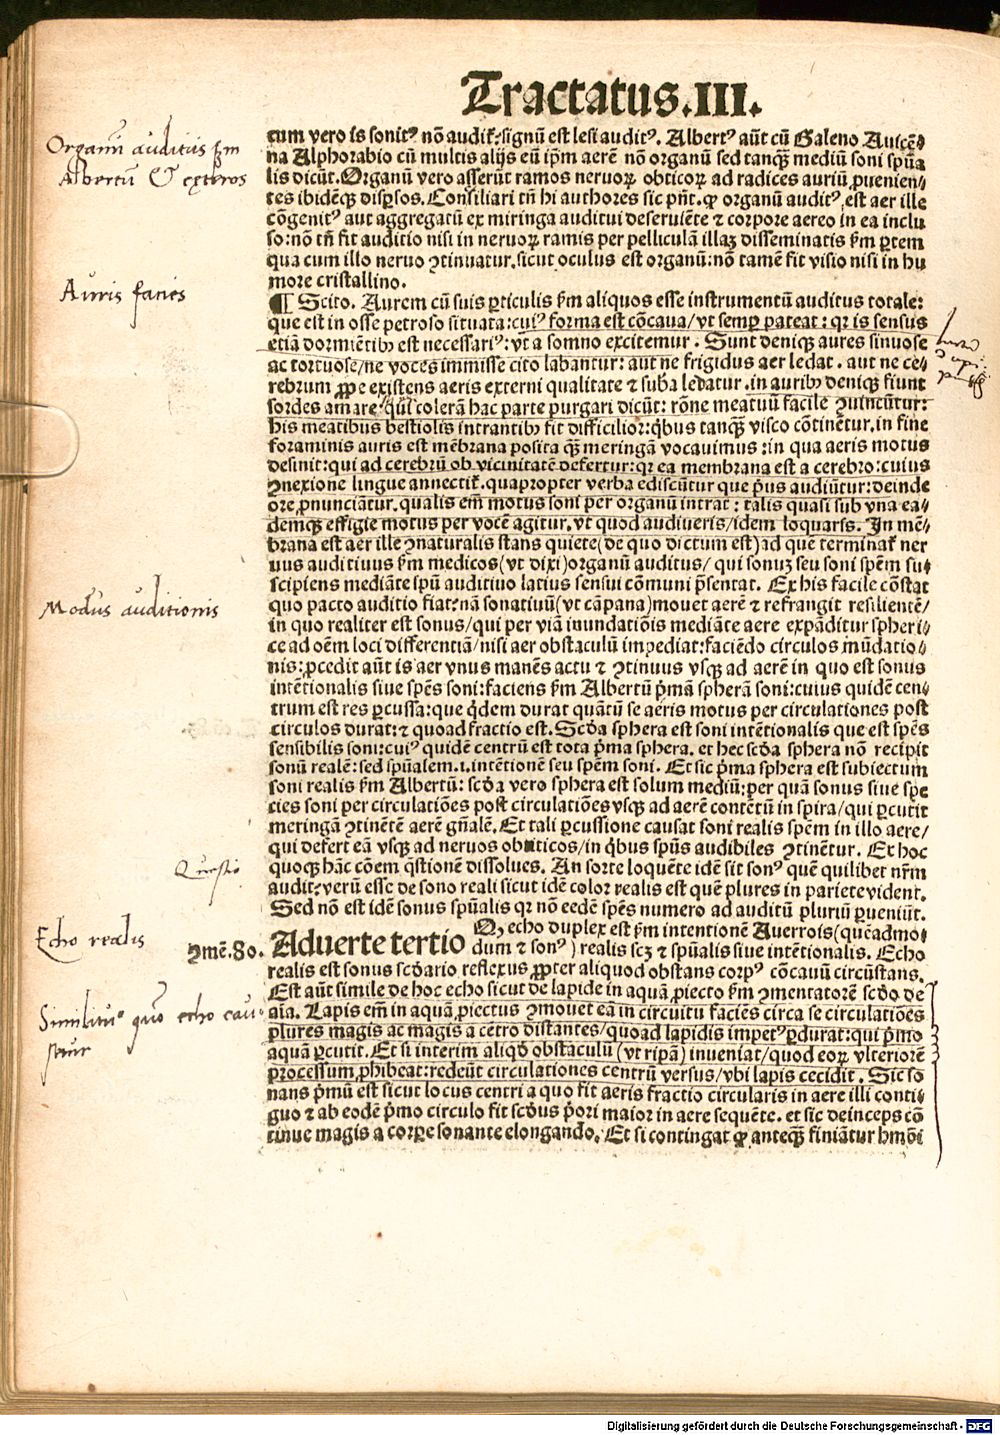 Tractatus.III.
cum vero is sonitꝰ nō audit̃: signū est lesi auditꝰ. Albertꝰ aūt cū Galeno Auicē⸗
na Alpharabio cū multis alijs eū ip̄m aerē nō organū sed tanqȝ mediū soni spūa
lis dicūt. Organū vero asserūt ramos neruoꝝ obticoꝝ ad radices auriū ꝓuenien⸗
tes ibidēqȝ disꝑsos. Consiliari tn̄ hi authores sic pn̄t. ꝙ organū auditꝰ, est aer ille
cōgenitꝰ aut aggregatū ex miringa auditui deseruiēte ⁊ corpore aereo in ea inclu
so: nō tn̄ fit auditio nisi in neruoꝝ ramis per pelliculā illaȝ disseminatis ẜm ꝑtem
qua cum illo neruo ꝯtinuatur. sicut oculus est organū: nō tamē fit visio nisi in hu
more cristallino.
¶ Scito. Aurem cū suis ꝑticulis ẜm aliquos esse instrumentū auditus totale:
que est in osse petroso situata: cuiꝰ forma est cōcaua/vt semꝑ pateat: qꝛ is sensus
etiā dormiētibȝ est necessariꝰ: vt a somno excitemur. Sunt deniqȝ aures sinuose
ac tortuose/ne voces immisse cito labantur: aut ne frigidus aer ledat. aut ne ce⸗
rebrum ꝓpe existens aeris externi qualitate ⁊ suba ledatur. in auribȝ deniqȝ fiunt
sordes amare: colerā hac parte purgari dicūt: rōne meatuū facile ꝯuincūtur:
his meatibus bestiolis intrantibȝ fit difficilior: qbus tanqȝ visco cōtinētur. in fine
foraminis auris est mēbrana posita qȝ meringā vocauimus: in qua aeris motus
desinit: qui ad cerebrū ob vicinitatē defertur: qꝛ ea membrana est a cerebro: cuius
ꝯnexione lingue annectit̃. quapropter verba ediscūtur que p̄us audiūtur: deinde
ore ꝓnunciātur. qualis em̄ motus soni per organū intrat: talis quasi sub vna ea⸗
demqȝ effigie motus per vocē agitur. vt quod audiueris/idem loquaris. In mē⸗
brana est aer ille ꝯnaturalis stans quiete (de quo dictum est) ad quē terminat̃ ner
uus auditiuus ẜm medicos (vt dixi) organū auditus/ qui sonuȝ seu soni spēm su⸗
scipiens mediāte spū auditiuo latius sensui cōmuni p̄sentat. Ex his facile cōstat
quo pacto auditio fiat: nā sonatiuū (vt cāpana) mouet aerē ⁊ refrangit resilientē/
in quo realiter est sonus/qui per viā inundatiōis mediāte aere expāditur spheri⸗
ce ad oēm loci differentiā/nisi aer obstaculū impediat: faciēdo circulos inūdatio⸗
nis: ꝓcedit aūt is aer vnus manēs actu ⁊ ꝯtinuus vsqȝ ad aerē in quo est sonus
intētionalis siue spēs soni: faciens ẜm Albertū p̄mā spherā soni: cuius quidē cen⸗
trum est res ꝑcussa: que qdem durat quātū se aeris motus per circulationes post
circulos durat: ⁊ quoad fractio est. Scda sphera est soni intētionalis que est spēs
sensibilis soni: cuiꝰ quidē centrū est tota p̄ma sphera. et hec scda sphera nō recipit
sonū realē: sed spūalem. i. intētionē seu spēm soni. Et sic p̄ma sphera est subiectum
soni realis ẜm Albertū: scda vero sphera est solum mediū: per quā sonus siue spe
cies soni per circulatiōes post circulatiōes vsqȝ ad aerē contētū in spira/qui ꝑcutit
meringā ꝯtinētē aerē gn̄alē. Et tali ꝑcussione causat soni realis spēm in illo aere/
qui defert eā vsqȝ ad neruos obticos/in qbus spūs audibiles ꝯtinētur. Ex hoc
quoqȝ hāc cōem qstionē dissolues. An sorte loquēte idē sit sonꝰ quē quilibet nr̄m
audit: verū esse de sono reali sicut idē color realis est quē plures in pariete vident.
Sed nō est idē sonus spūalis qꝛ nō eedē spēs numero ad auditū pluriū ꝑueniūt.
Aduerte tertio Qȝ echo duplex est ẜm intentionē Auerrois (quēadmo⸗
dum ⁊ sonꝰ) realis scȝ ⁊ spūalis siue intētionalis. Echo
realis est sonus scdario reflexus ꝓpter aliquod obstans corpꝰ cōcauū circūstans.
Est aūt simile de hoc echo sicut de lapide in aquā ꝓiecto ẜm ꝯmentatorē scdo de
aīa. Lapis em̄ in aquā ꝓiectus ꝯmouet eā in circuitu facies circa se circulatiōes
plures magis ac magis a cētro distantes/quoad lapidis impetꝰ ꝑdurat: qui p̄mo
aquā ꝑcutit. Et si interim aliqd obstaculū (vt ripā) inueniat/quod eoꝝ vlteriorē
processum ꝓhibeat: redeūt circulationes centrū versus/vbi lapis cecidit. Sic so
nans p̄mū est sicut locus centri a quo fit aeris fractio circularis in aere illi conti⸗
guo ⁊ ab eodē p̄mo circulo fit scdus p̄ori maior in aere sequēte. et sic deinceps cō
tinue magis a corꝑe sonante elongando. Et si contingat ꝙ anteqȝ finiātur hmōi
Organū auditus ẜm
Albertū & exteros
Auris facies
Modus auditionis
Questio
Echo realis
ꝯmē. 80.
Similitu° quō echo cau
setur
Digitalisierung gefördert durch die Deutsche Forschungsgemeinschaft - DFG